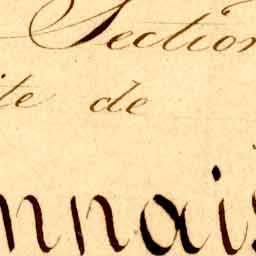 Section
ite de
nnais